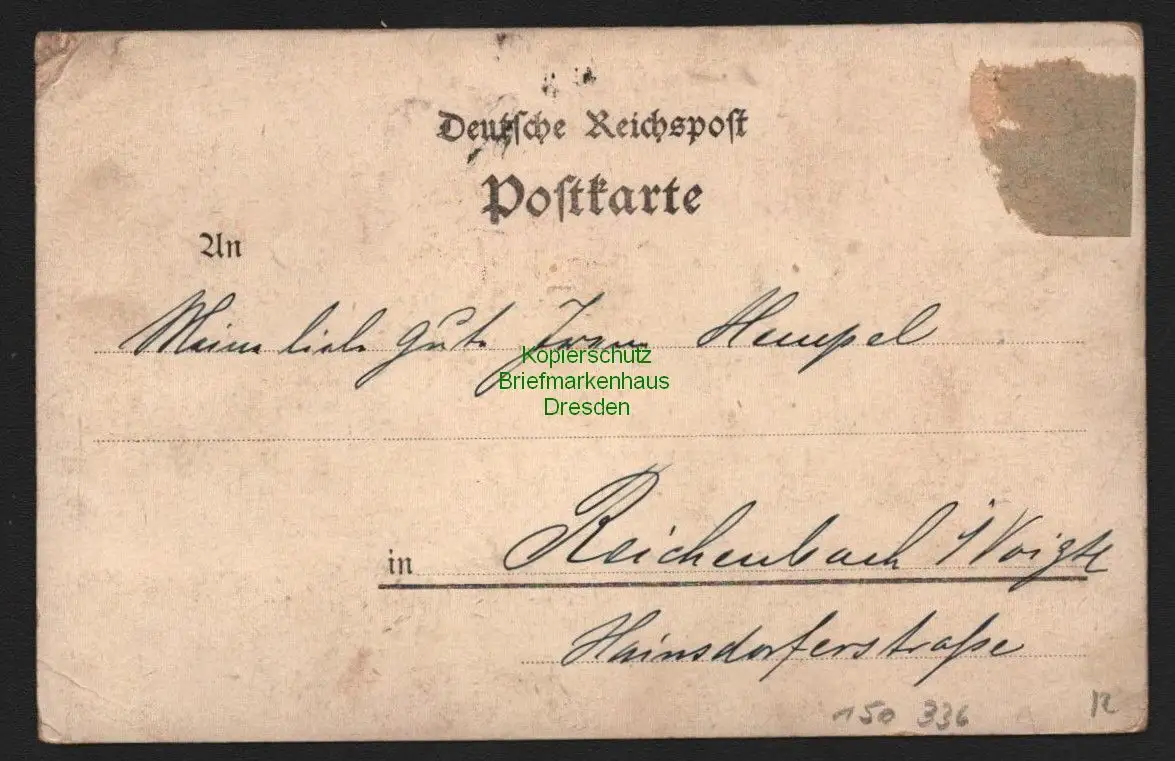 Deutsche Reichspost
Postkarte
An
Meine liebe gute Frau Hempel
Kopierschutz
Briefmarkenhaus
Dresden
in Reichenbach i/Voigtl
Hainsdorferstraße
150 336 R